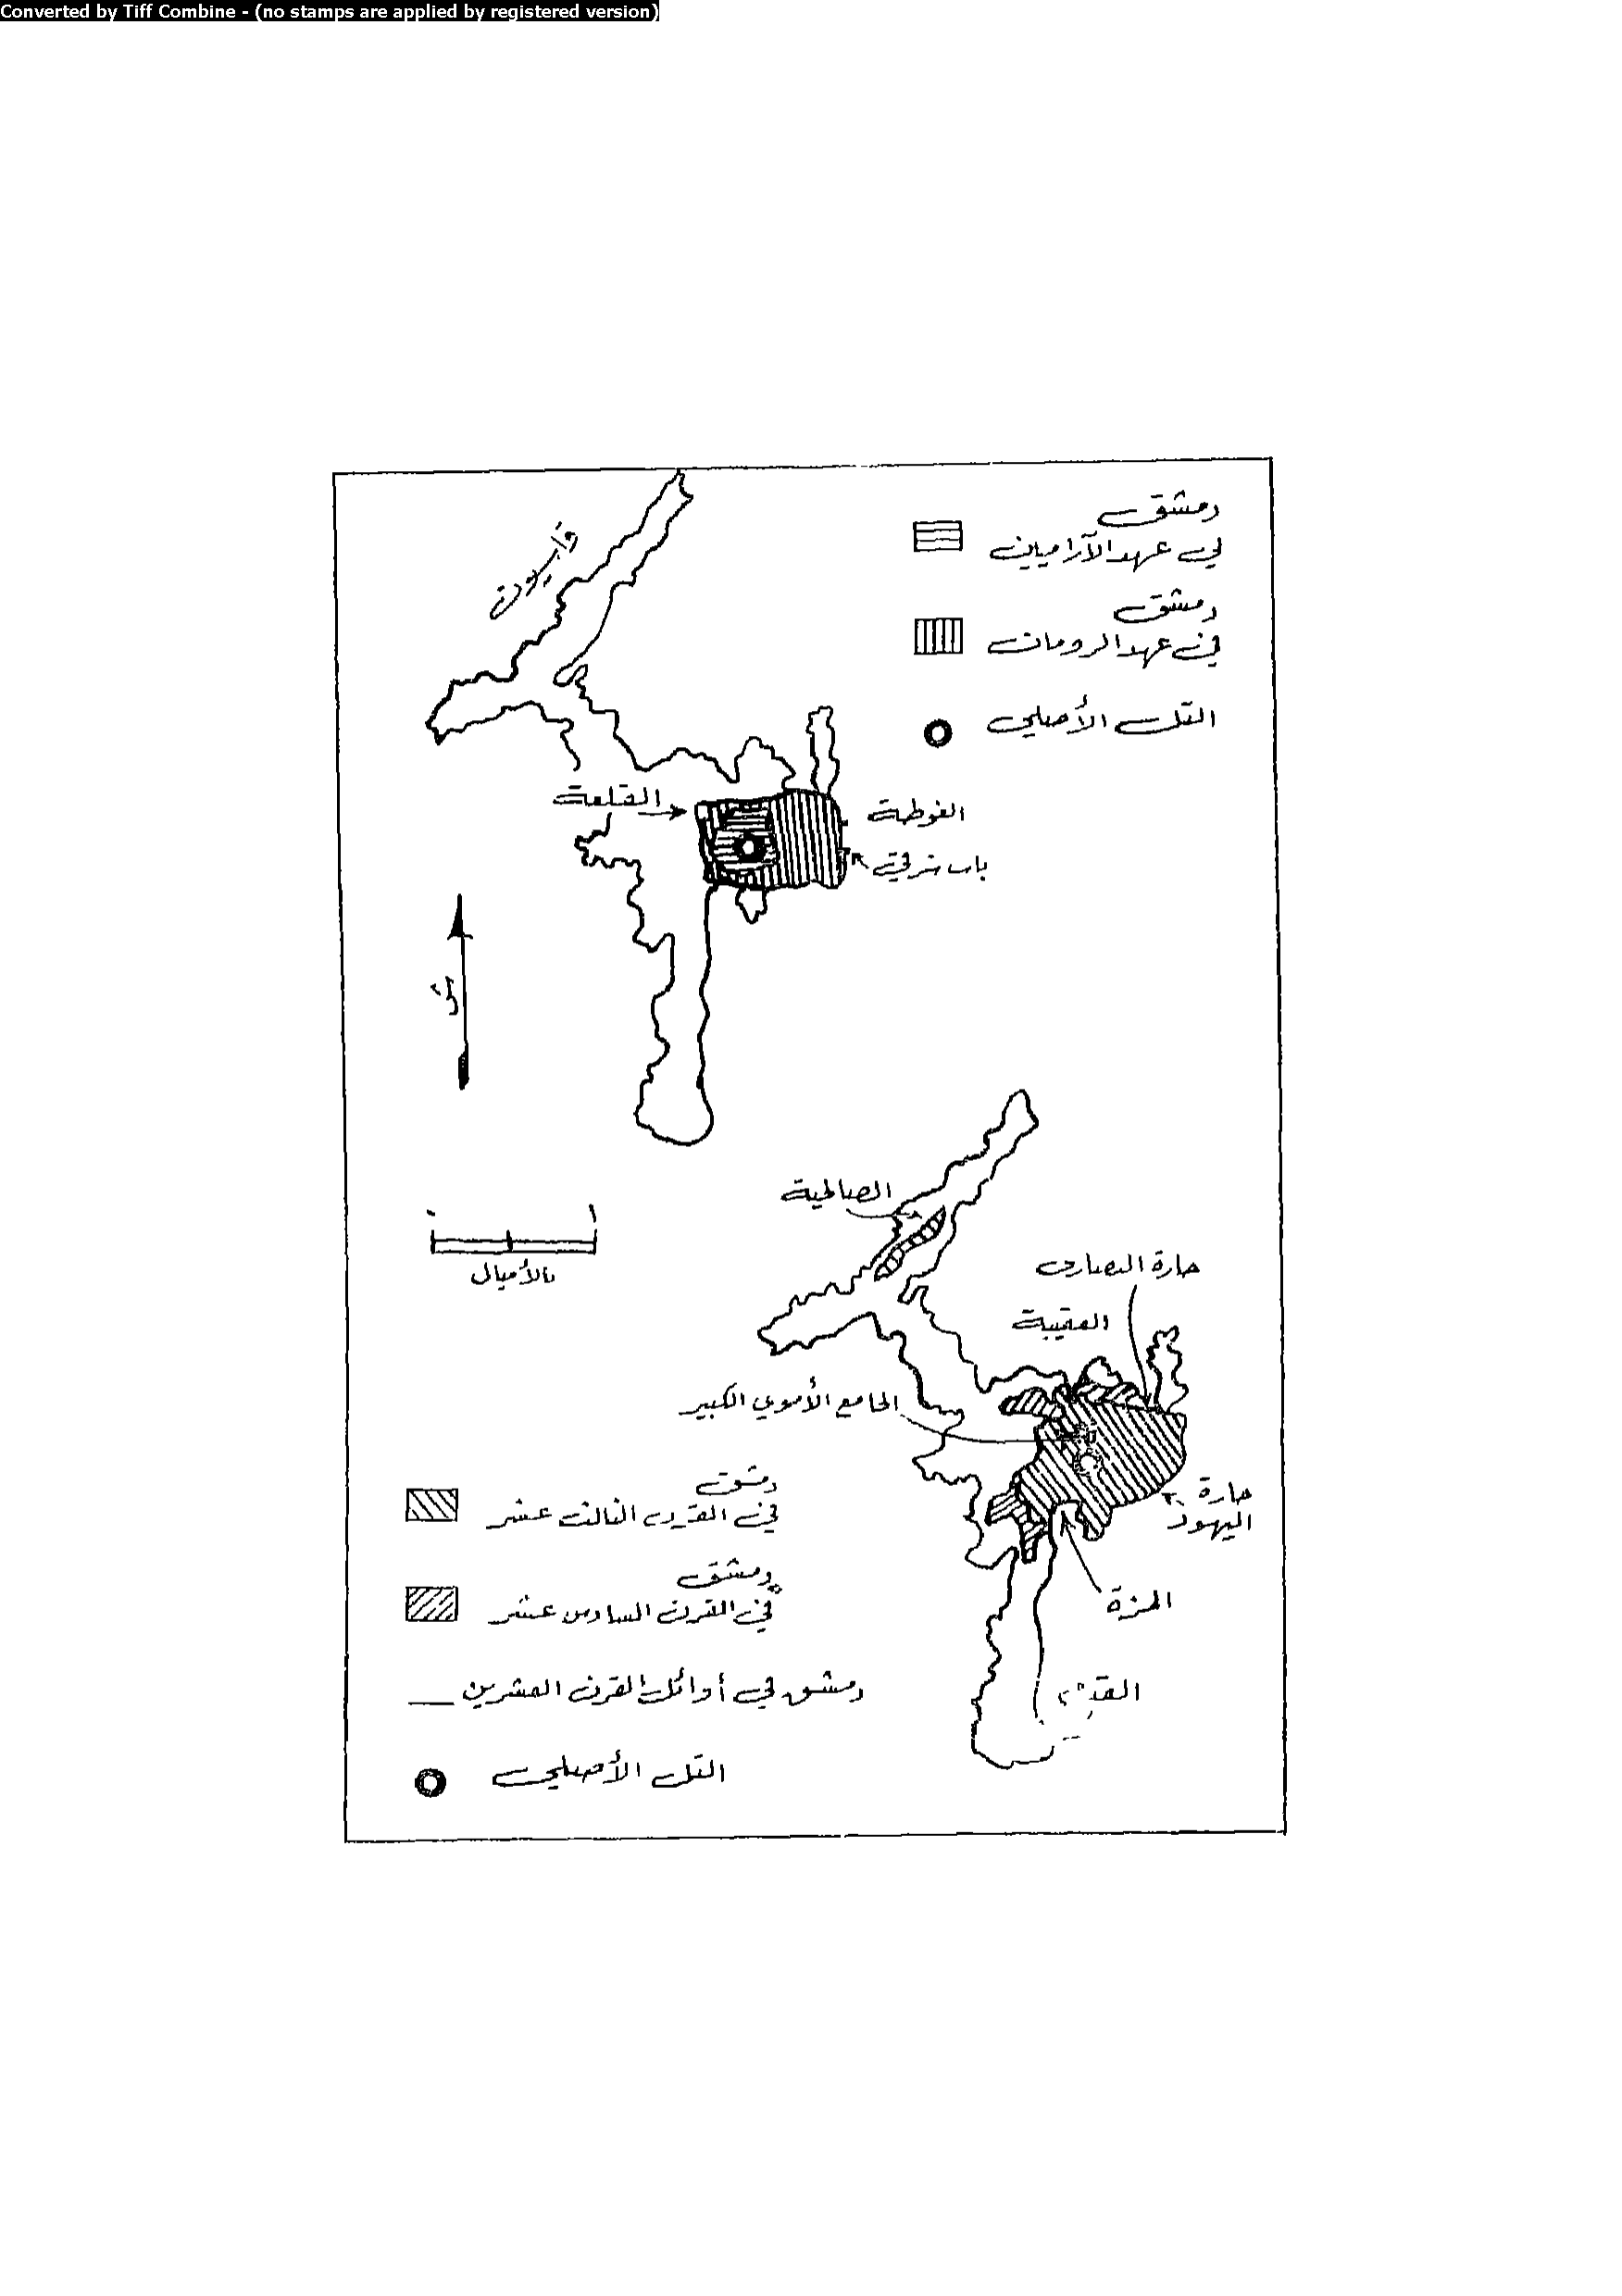 Converted by Tiff Combine - (no stamps are applied by registered version)
دمشق
في عهد الآراميين
دمشق
في عهد الرومان
التل الأصلي
قاسيون
القلعة
الغوطة
باب شرقي
ش
الصالحية
٠ ١
بالأميال
حارة النصارى
العقيبة
الجامع الأموي الكبير
حارة
اليهود
دمشق
في القرن الثالث عشر
دمشق
في القرن السادس عشر
المزة
دمشق في أوائل القرن العشرين
القدم
التل الأصلي